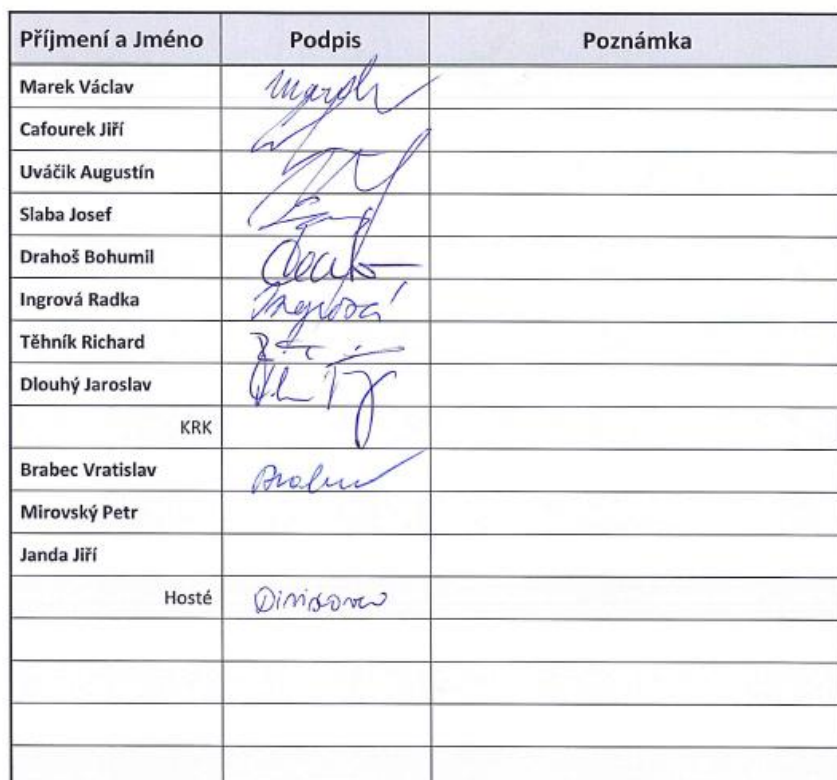 Příjmení a Jméno Podpis Poznámka
Marek Václav Marek
Cafourek Jiří
Uváčik Augustín
Slaba Josef
Drahoš Bohumil
Ingrová Radka Ingrová
Těhník Richard
Dlouhý Jaroslav
KRK
Brabec Vratislav Brabec
Mirovský Petr
Janda Jiří
Hosté